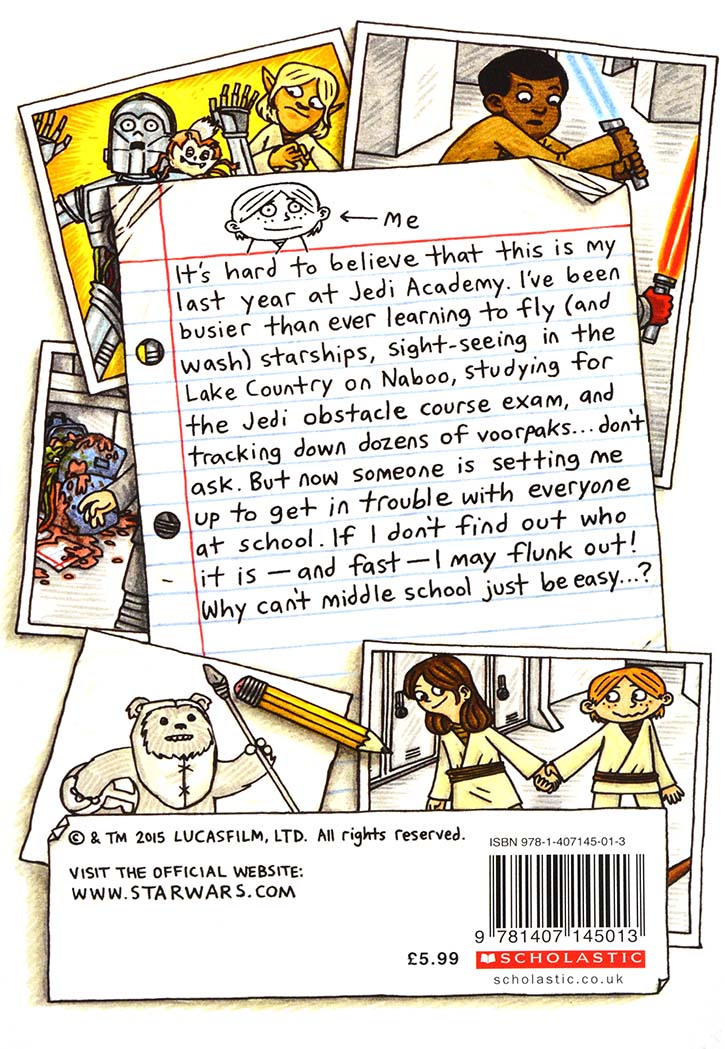 Me
It's hard to believe that this is my
last year at Jedi Academy. I've been
busier than ever learning to fly (and
wash) starships, sight-seeing in the
Lake Country on Naboo, studying for
the Jedi obstacle course exam, and
tracking down dozens of voorpaks...don't
ask. But now someone is setting me
up to get in trouble with everyone
at school. If I don't find out who
it is — and fast — I may flunk out!
Why can't middle school just be easy...?
© & TM 2015 LUCASFILM, LTD. All rights reserved.
VISIT THE OFFICIAL WEBSITE:
WWW.STARWARS.COM
ISBN 978-1-407145-01-3
9 781407 145013
£5.99
SCHOLASTIC
scholastic.co.uk